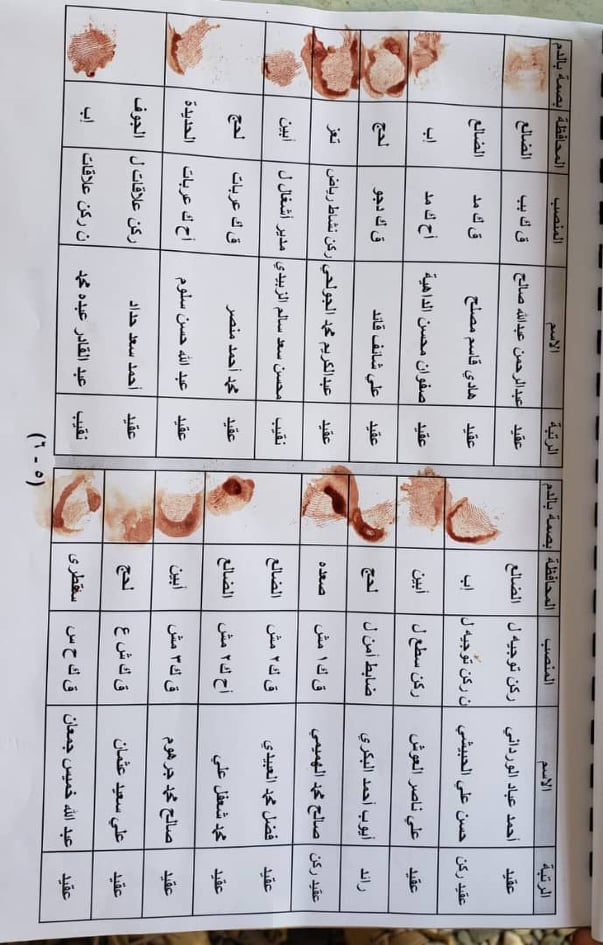 الرتبة الاسم المنصب المحافظة بصمة بالدم
عقيد أحمد عباد الورداني ركن توجيه ل الضالع
عقيد ركن حسن علي الحبيشي ن ركن توجيه ل اب
عقيد علي ناصر العوش ركن سطع ل أبين
رائد أيوب أحمد البكري ضابط أمن ل لحج
عقيد ركن صالح محمد الهميمي ق ك ١ مش صعده
عقيد فضل محمد العبيدي ق ك ٢ مش الضالع
عقيد محمد شعفل علي أح ك ٢ مش الضالع
عقيد صالح محمد جرهوم ق ك ٣ مش أبين
عقيد علي سعيد عثمان ق ك ش ع لحج
عقيد عبد الله خميس جمعان ق ك ح س سقطرى
الرتبة الاسم المنصب المحافظة بصمة بالدم
عقيد عبدالرحمن عبدالله صالح ق ك بب الضالع
عقيد هادي قاسم مصلح ق ك مد الضالع
عقيد صفوان محسن الداهية أح ك مد اب
عقيد علي شائف قائد ق ك دجو لحج
عقيد عبدالكريم محمد الجولحي ركن نشاط رياض تعز
نقيب محسن سعد سالم الزبيدي مدير أشغال ل أبين
عقيد محمد أحمد منصر ق ك عربات لحج
عقيد عبد الله حسن سلوم أح ك عربات الحديدة
عقيد أحمد سعد حداد ركن علاقات ل الجوف
نقيب عبد القادر عبده محمد ن ركن علاقات اب
(٥ - ٦)